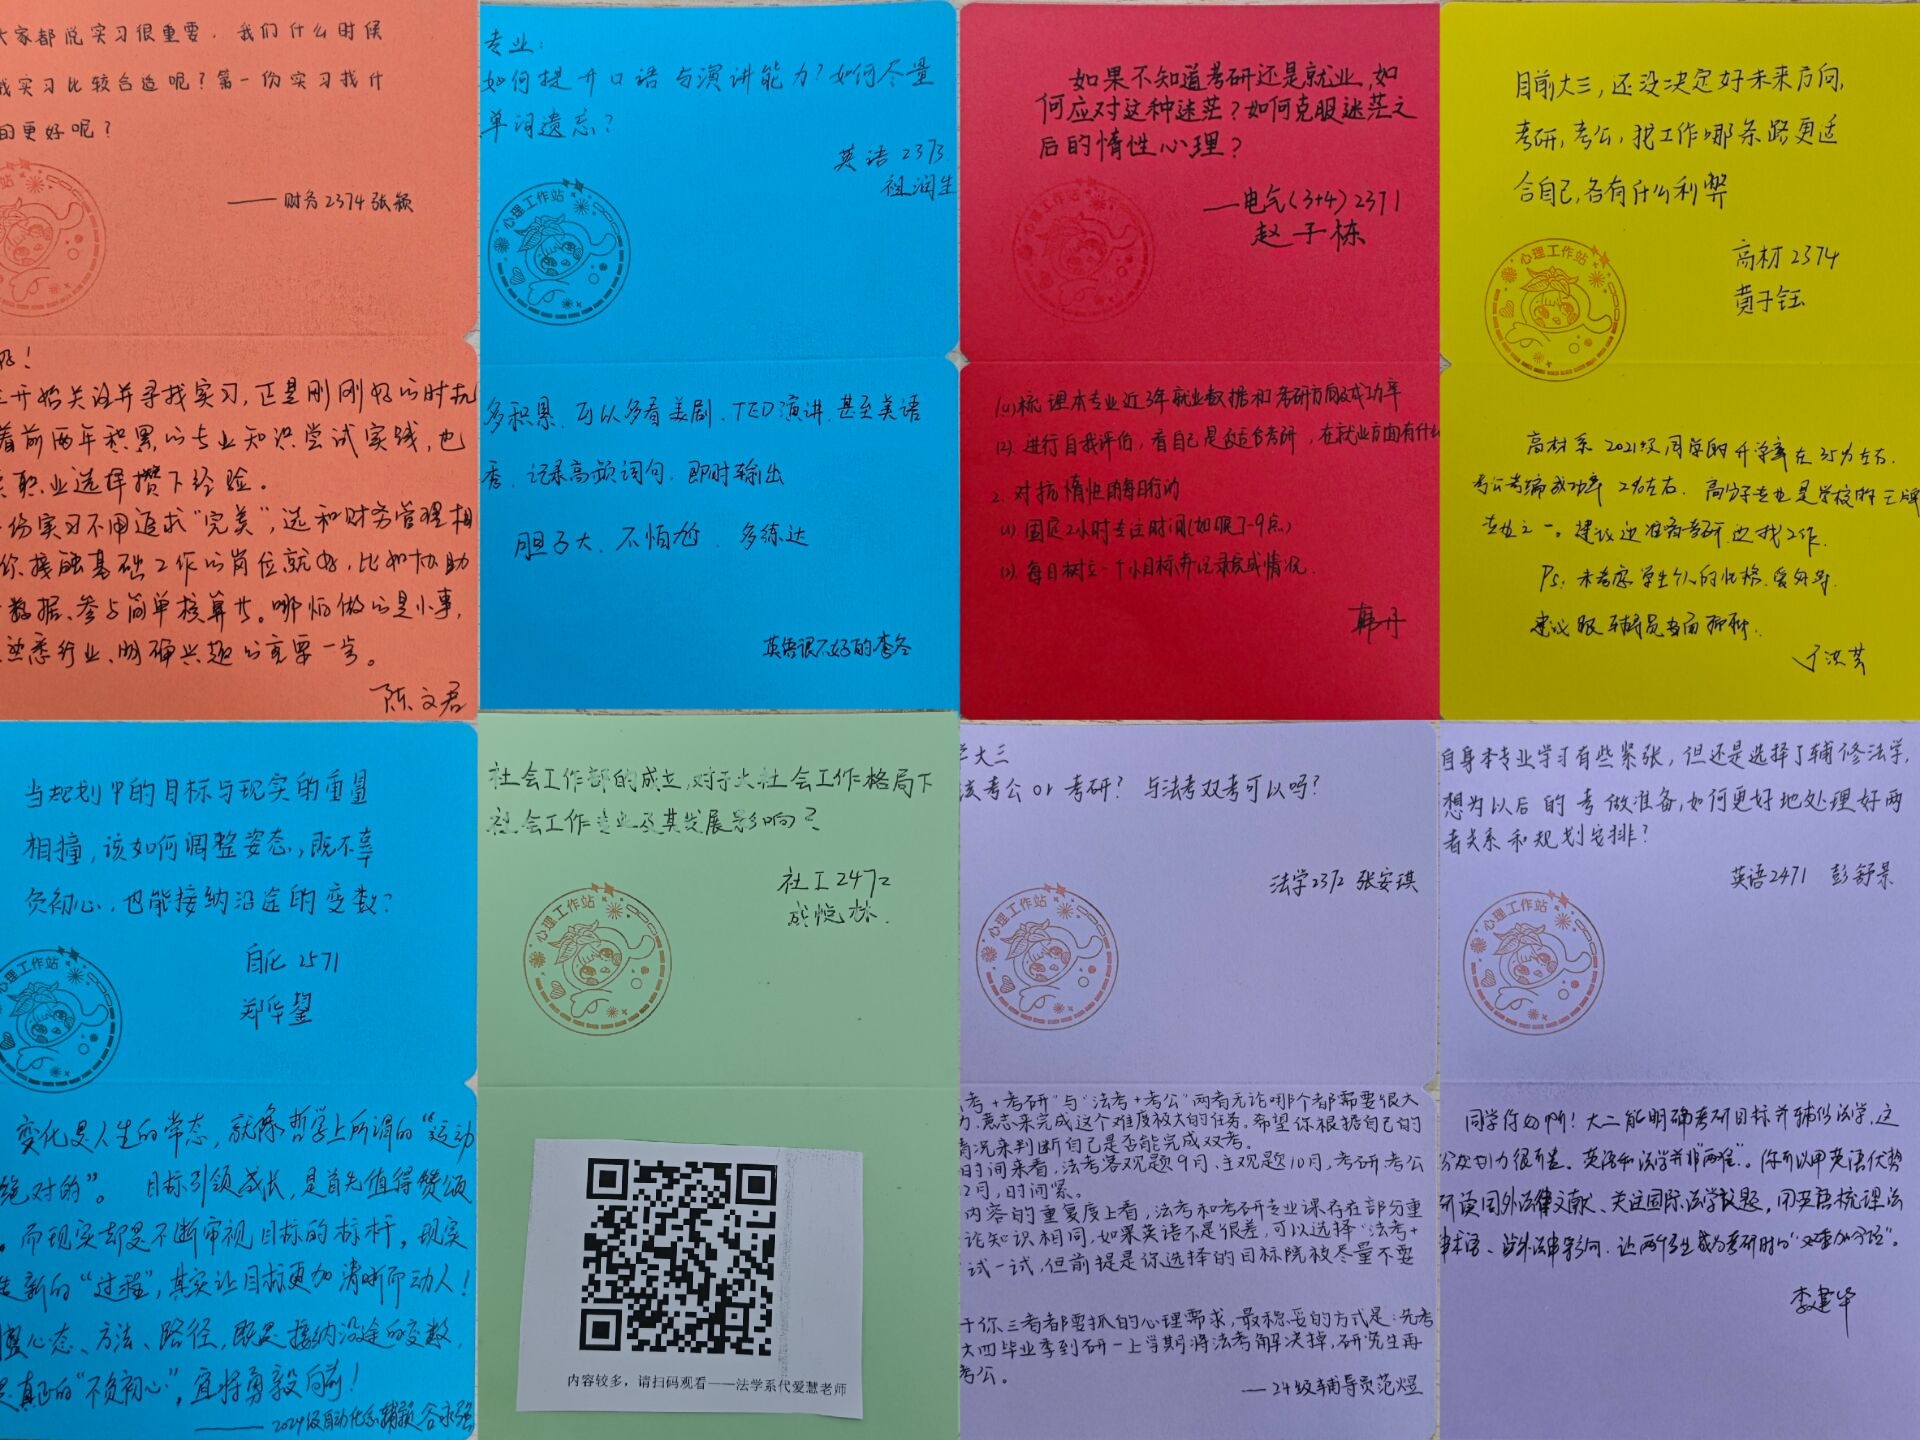 大家都说实习很重要，我们什么时候
找实习比较合适呢？第一份实习找什
的更好呢？
——财务2374 张颖
心理工作站
好！
三开始关注并寻找实习，正是刚刚好的时机
着前两年积累的专业知识尝试实践，也
职业选择攒下经验。
份实习不用追求“完美”，选和财务管理相
你接触基础工作的岗位就好，比如协助
数据、参与简单核算等。哪怕做的是小事，
熟悉行业、明确兴趣的重要一步。
陈文君
专业：
如何提升口语与演讲能力？如何尽量
单词遗忘？
英语2373
祖润生
心理工作站
多积累，可以多看美剧、TED演讲，甚至美语
秀，记录高频词句，即时输出
胆子大、不怕尬、多练达
英语很不好的李冬
如果不知道考研还是就业，如
何应对这种迷茫？如何克服迷茫之
后的惰性心理？
——电气(3+4)2371
赵子栋
心理工作站
(1)梳理本专业近3年就业数据和考研方向及成功率
(2).进行自我评估，看自己是否适合考研，在就业方面有什么
2.对抗惰性的每日行动
(1)固定2小时专注时间(如晚7-9点)
(2).每日树立一个小目标并记录完成情况.
韩丹
目前大三，还没决定好未来方向，
考研，考公，找工作哪条路更适
合自己，各有什么利弊
高材2374
黄子钰
心理工作站
高材系2021级同学的升学率在35%左右.
考公考编成功率2%左右. 高分子专业是学校的王牌
专业之一。建议边准备考研边找工作.
Ps: 未考虑学生个人的性格、爱好等.
建议跟辅导员当面聊聊.
于洪芸
当规划中的目标与现实的重量
相撞，该如何调整姿态，既不辜
负初心，也能接纳沿途的变数？
自化2571
郑华鋆
心理工作站
变化是人生的常态，就像哲学上所谓的“运动
绝对的”。目标引领成长，是首先值得赞颂
。而现实却是不断审视目标的标杆。现实
新的“过程”，其实让目标更加清晰而动人！
心态、方法、路径，既是接纳沿途的变数，
是真正的“不负初心”，宜将勇毅向前！
——2024级自动化系辅导员 谷永强
社会工作部的成立，对于大社会工作格局下
社会工作专业及其发展影响？
社工2472
心理工作站
内容较多，请扫码观看——法学系代爱慧老师
学大三
该考公or考研？与法考双考可以吗？
法学2372 张安琪
心理工作站
考+考研”与“法考+考公”两者无论哪个都需要很大
力、意志来完成这个难度极大的任务。希望你根据自己的
情况来判断自己是否能完成双考。
时间来看，法考客观题9月、主观题10月，考研、考公
2月，时间紧。
内容的重复度上看，法考和考研专业课存在部分重
论知识相同，如果英语不是很差，可以选择“法考+
试一试，但前提是你选择的目标院校尽量不要
于你三者都要抓的心理需求，最稳妥的方式是：先考
大四毕业季到研一上学期将法考解决掉，研究生再
考公。
——24级辅导员范煜
自身本专业学习有些紧张，但还是选择了辅修法学，
想为以后的考做准备，如何更好地处理好两
者关系和规划安排？
英语2471 彭舒景
心理工作站
同学你好啊！大二能明确考研目标并辅修法学，这
份规划力很不差。英语和法学并非“两难”。你可以用英语优势
研读国外法律文献、关注国际法学议题，用英语梳理法
律术语、涉外法律方向，让两个专业成为考研时的“双重加分项”。
李建华